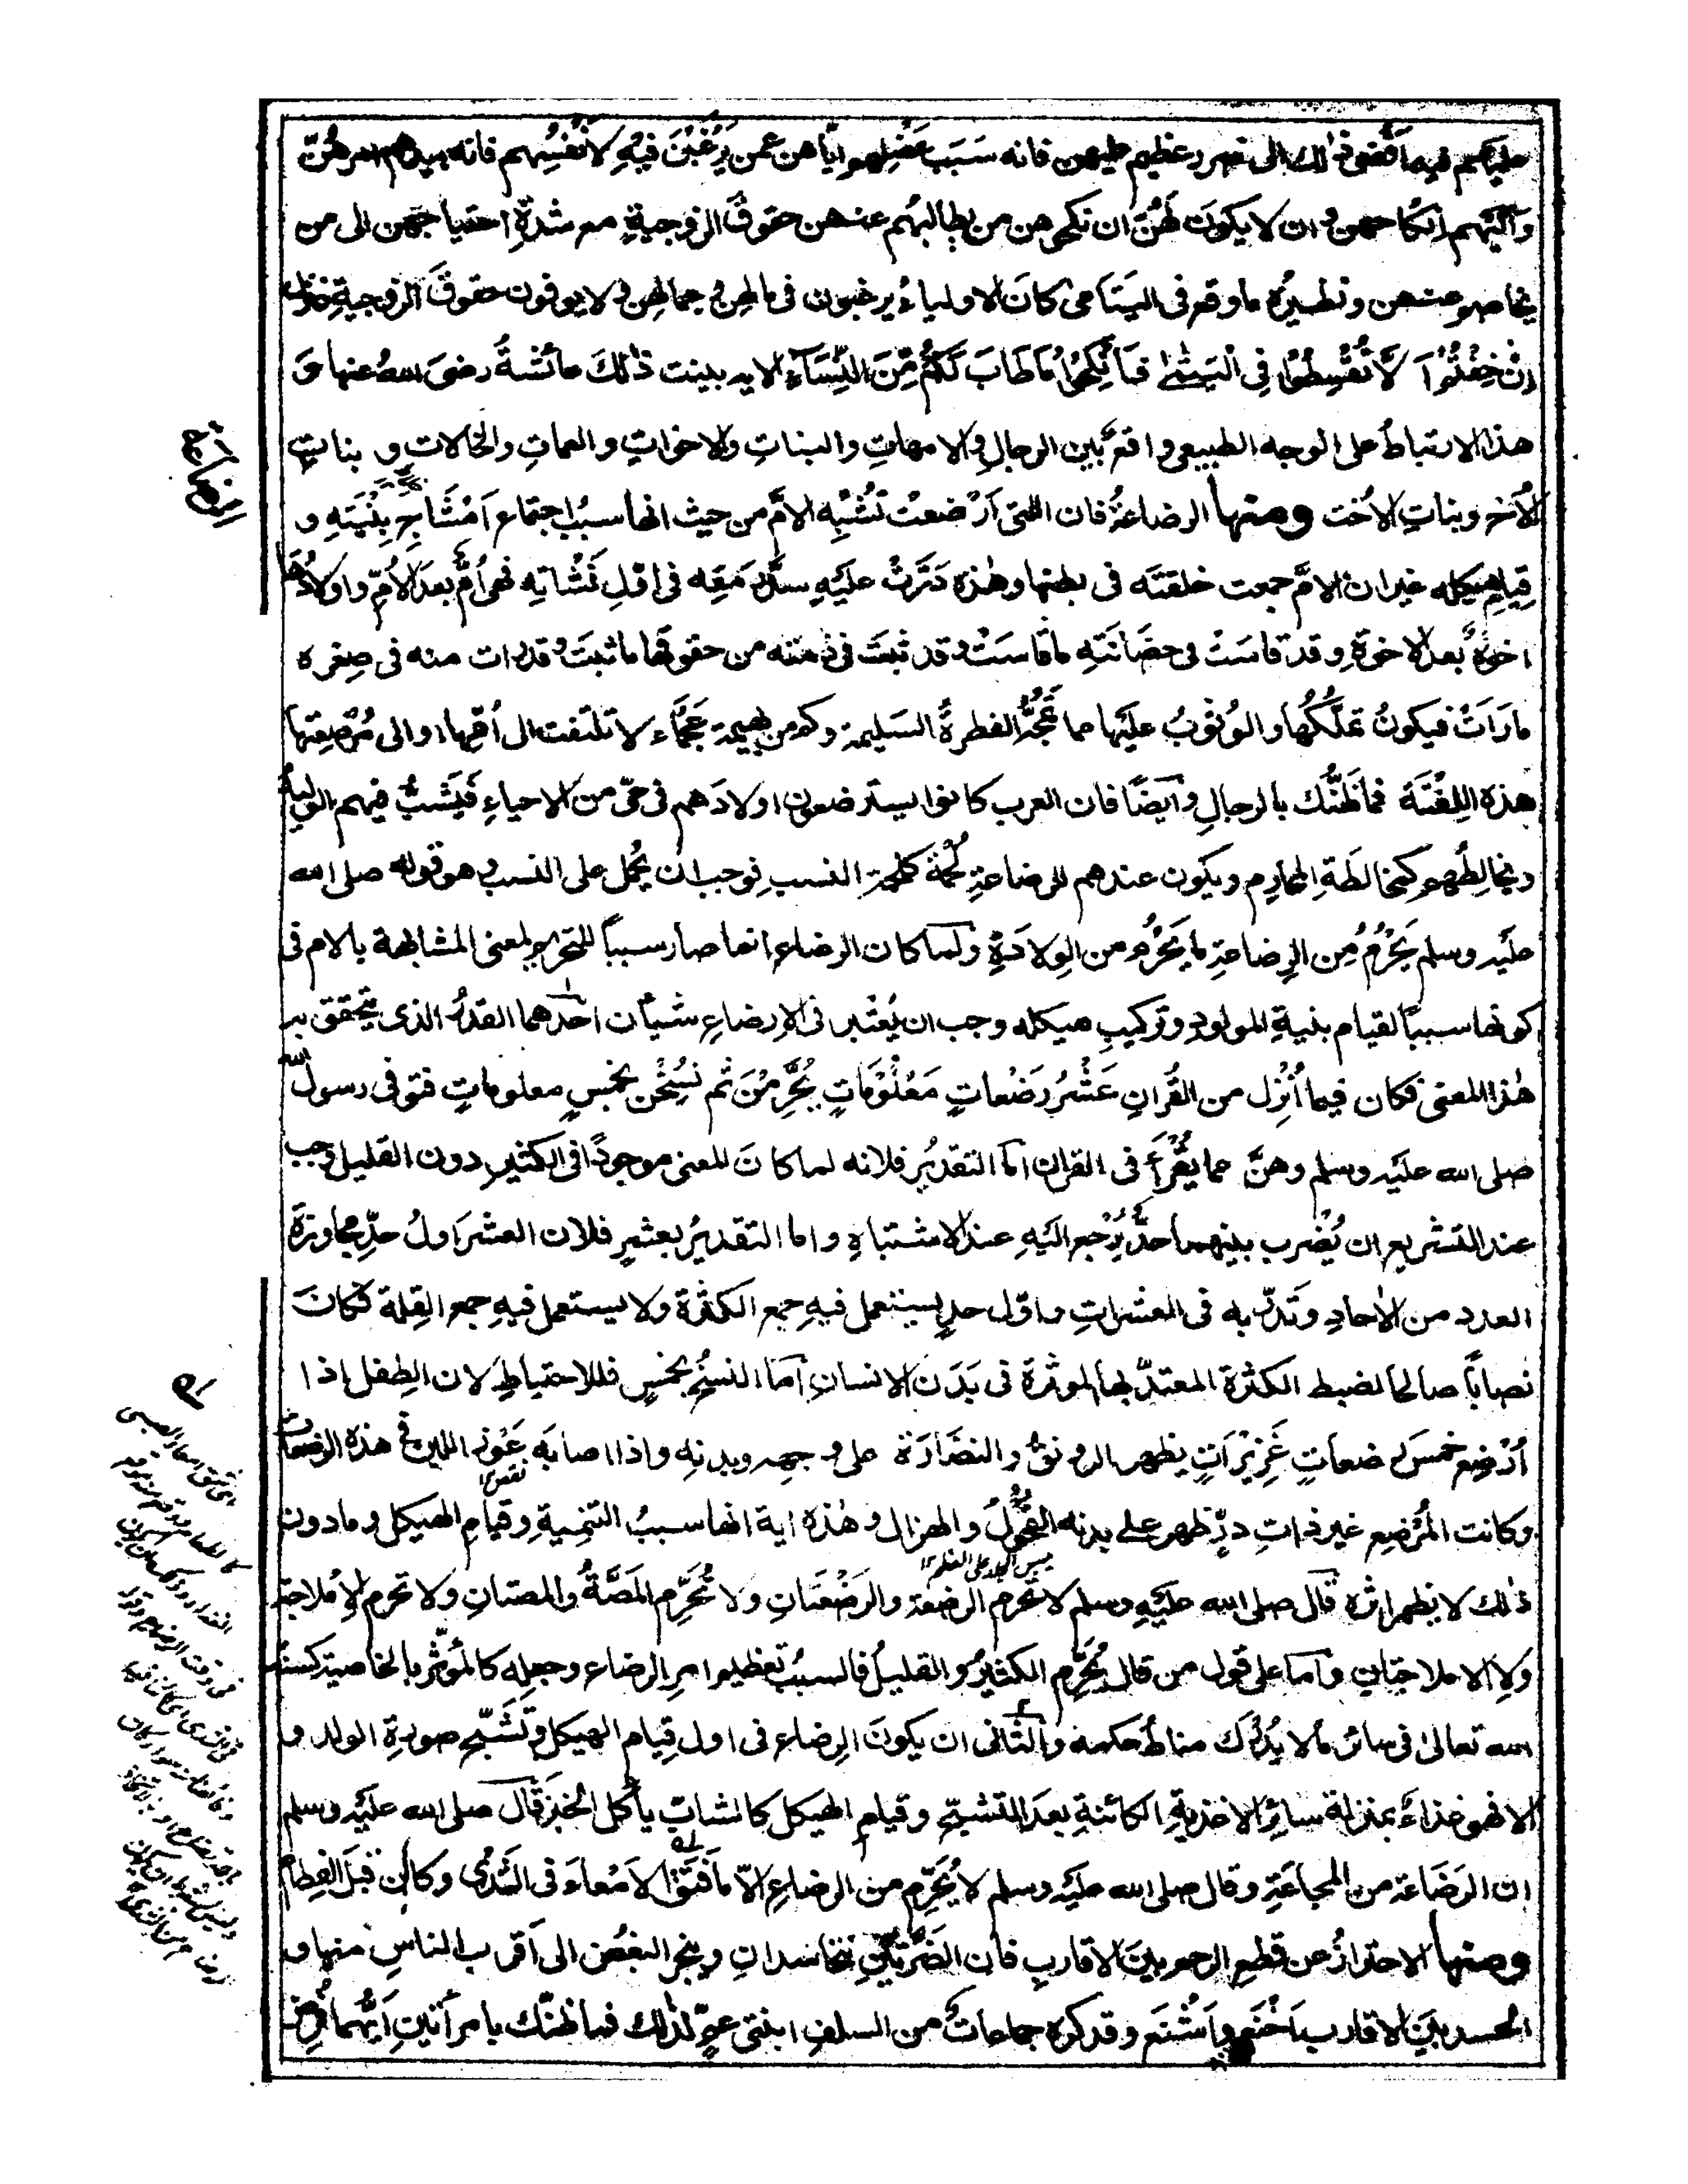 عليهم فيهن افضى ذلك الى ضرر عظيم عليهن فانه سبب عضلهم اياهن عمن يرغبن فيه لانفسهم فانه بيدهم امرهن
واليهم انكاحهن و ان لا يكون لهن ان نكحوهن من يطالبهم عنهن حقوق الزوجية مع شدة احتياجهن الى من
يخاصم عنهن ونظيره ما وقع فى اليتامى كان الاولياء يرغبون فى مالهن وجمالهن ولا يوفون حقوق الزوجية فنزل
اِنْ خِفْتُمْ اَ لَّا تُقْسِطُوْا فِى الْيَتٰمٰى فَانْكِحُوْا مَا طَابَ لَكُمْ مِّنَ النِّسَآءِ الاية بينت ذلك عائشة رضى الله عنها و
هذا الارتباط على الوجه الطبيعى واقع بين الرجال والامهات والبنات والاخوات والعمات والخالات و بنات
الاخ وبنات الاخت ومنها الرضاعة فان التى ارضعت تُشْبِه الامَّ من حيث انها سبب اجتماع اَمْشَاج بِنْيَتِه و
قيام هيكله غير ان الامَّ جمعت خلقتَه فى بطنها وهذه دَرَّتْ عليه سدَّ رَمَقِه فى اوّل نَشْأته فهى اُمٌّ بعد الاُمّ واولادُها
اخوةٌ بعد الاخوة وقد قاسَتْ فى حضَانَتِه ما قاسَتْ وقد ثبت فى ذمته من حقوقها ما ثبت وقد رات منه فى صغره
ما رَاَتْ فيكونُ تملّكُها والوُثوبُ عليها مما تمجُّه الفطرةُ السليمة وكم من بهيمة عَجْمَاء لا تلتفت الى اُمّها او الى مُرْضِعتها
هذه اللِفْتَة فما ظَنُّك بالرجال وايضًا فان العرب كانوا يسترضعون اولادَهم فى حىّ من الاحياءِ فيَشبّ فيهم الوليد
ويخالِطُهم كمخالطَةِ المحارم ويكون عندهم للرضاعةِ لُحْمَة كلحمة النسب فوجب ان يُحْمل على النسب وهو قوله صلى الله
عليه وسلم يَحْرُمُ مِن الرِضاعة ما يَحْرُم من الولادَةِ ولما كان الرضاع انما صار سبباً للتحريم لمعنى المشابهة بالام فى
كونها سبباً لقيام بنية المولود وتركيب هيكله وجب ان يُعْتبر فى الارضاع شيآن احدهما القدرُ الذى يتحقق به
هٰذا المعنى فكان فيما اُنْزِل من القُران عَشْرُ رَضْعاتٍ مَعْلُوْمَاتٍ يُحَرِّمْنَ ثم نُسِخْن بخمسٍ معلوماتٍ فتوفى رسول الله
صلى الله عليه وسلم وهنَّ مما يُقْرَأُ فى القران اما التقديرُ فلانه لما كانَ المعنى موجودًا فى الكثير دون القليل وجب
عند التشريع ان يُضْرب بينهما حدٌّ يُرْجع اليه عند الاشتباه واما التقديرُ بعشرٍ فلان العشرَ اولُ حدِّ مجاوزةَ
العدد من الاحاد وتَدرّبه فى العشرات واوّل حد يستعمل فيه جمع الكثرة ولا يستعمل فيه جمع القلة فكانَ
نصاباً صالحا لضبط الكثرة المعتدّ بها الموثرة فى بَدَن الانسان اما النسخُ بخمسٍ فللاحتياط لان الطفل اذا
اُرْضِع خمسَ رضعاتٍ غَزِيْرَاتٍ يظهر الرونقُ والنضَارَة على وجهه وبدنِه واذا اصابه عَوَز اللبن فى هذه الرضعات
وكانت المُرْضِع غير ذاتِ درٍّ ظهر على بدنه القُحُولُ والهزال وهٰذه اية انها سببُ التنمِية وقيامِ الهيكل وما دون
ذلك لا يظهر اثره قال صلى الله عليه وسلم لا تحرم الرضعة والرَضْعَتَان ولا تُحَرِّم المَصَّةُ والمصتانِ ولا تحرم الاِمْلاجة
ولا الاملاجتان واما على قول من قال يُحَرِّم الكثيرُ والقليلُ فالسببُ تعظيم امرِ الرضاع وجعلِه كالموَثر بالخاصية كسنة
الله تعالى فى سائر ما لا يُدْرَك مناطُ حكمه والثانى ان يكونَ الرضاع فى اول قيام الهيكل وتَشَبُّح صورةِ الولد و
الا فهو غذاءٌ بمنزلة سائرِ الاغذيةِ الكائنةِ بعدَ التشبّح وقيام الهيكل كالشاب يأكل الخبز قال صلى الله عليه وسلم
ان الرَضَاعة من المجاعَةِ وقال صلى الله عليه وسلم لا يُحَرِّم من الرضاع الّا ما فَتَقَ الاَمْعاءَ فى الثَدْى وكان قبلَ الفِطامُ
ومنها الاحترازُ عن قطع الرحم بين الاقارب فان الضَرَّتَيْنِ تتحاسدان وينجر البغضُ الى اَقرب الناس منهما و
الحسد بين الاقارب اَخْنَع واَشْنَع وقد كره جماعاتٌ من السلف ابنتى عمٍّ لذلك فما ظنّك بامرأتينِ اَيُّهُما فُرِضَ